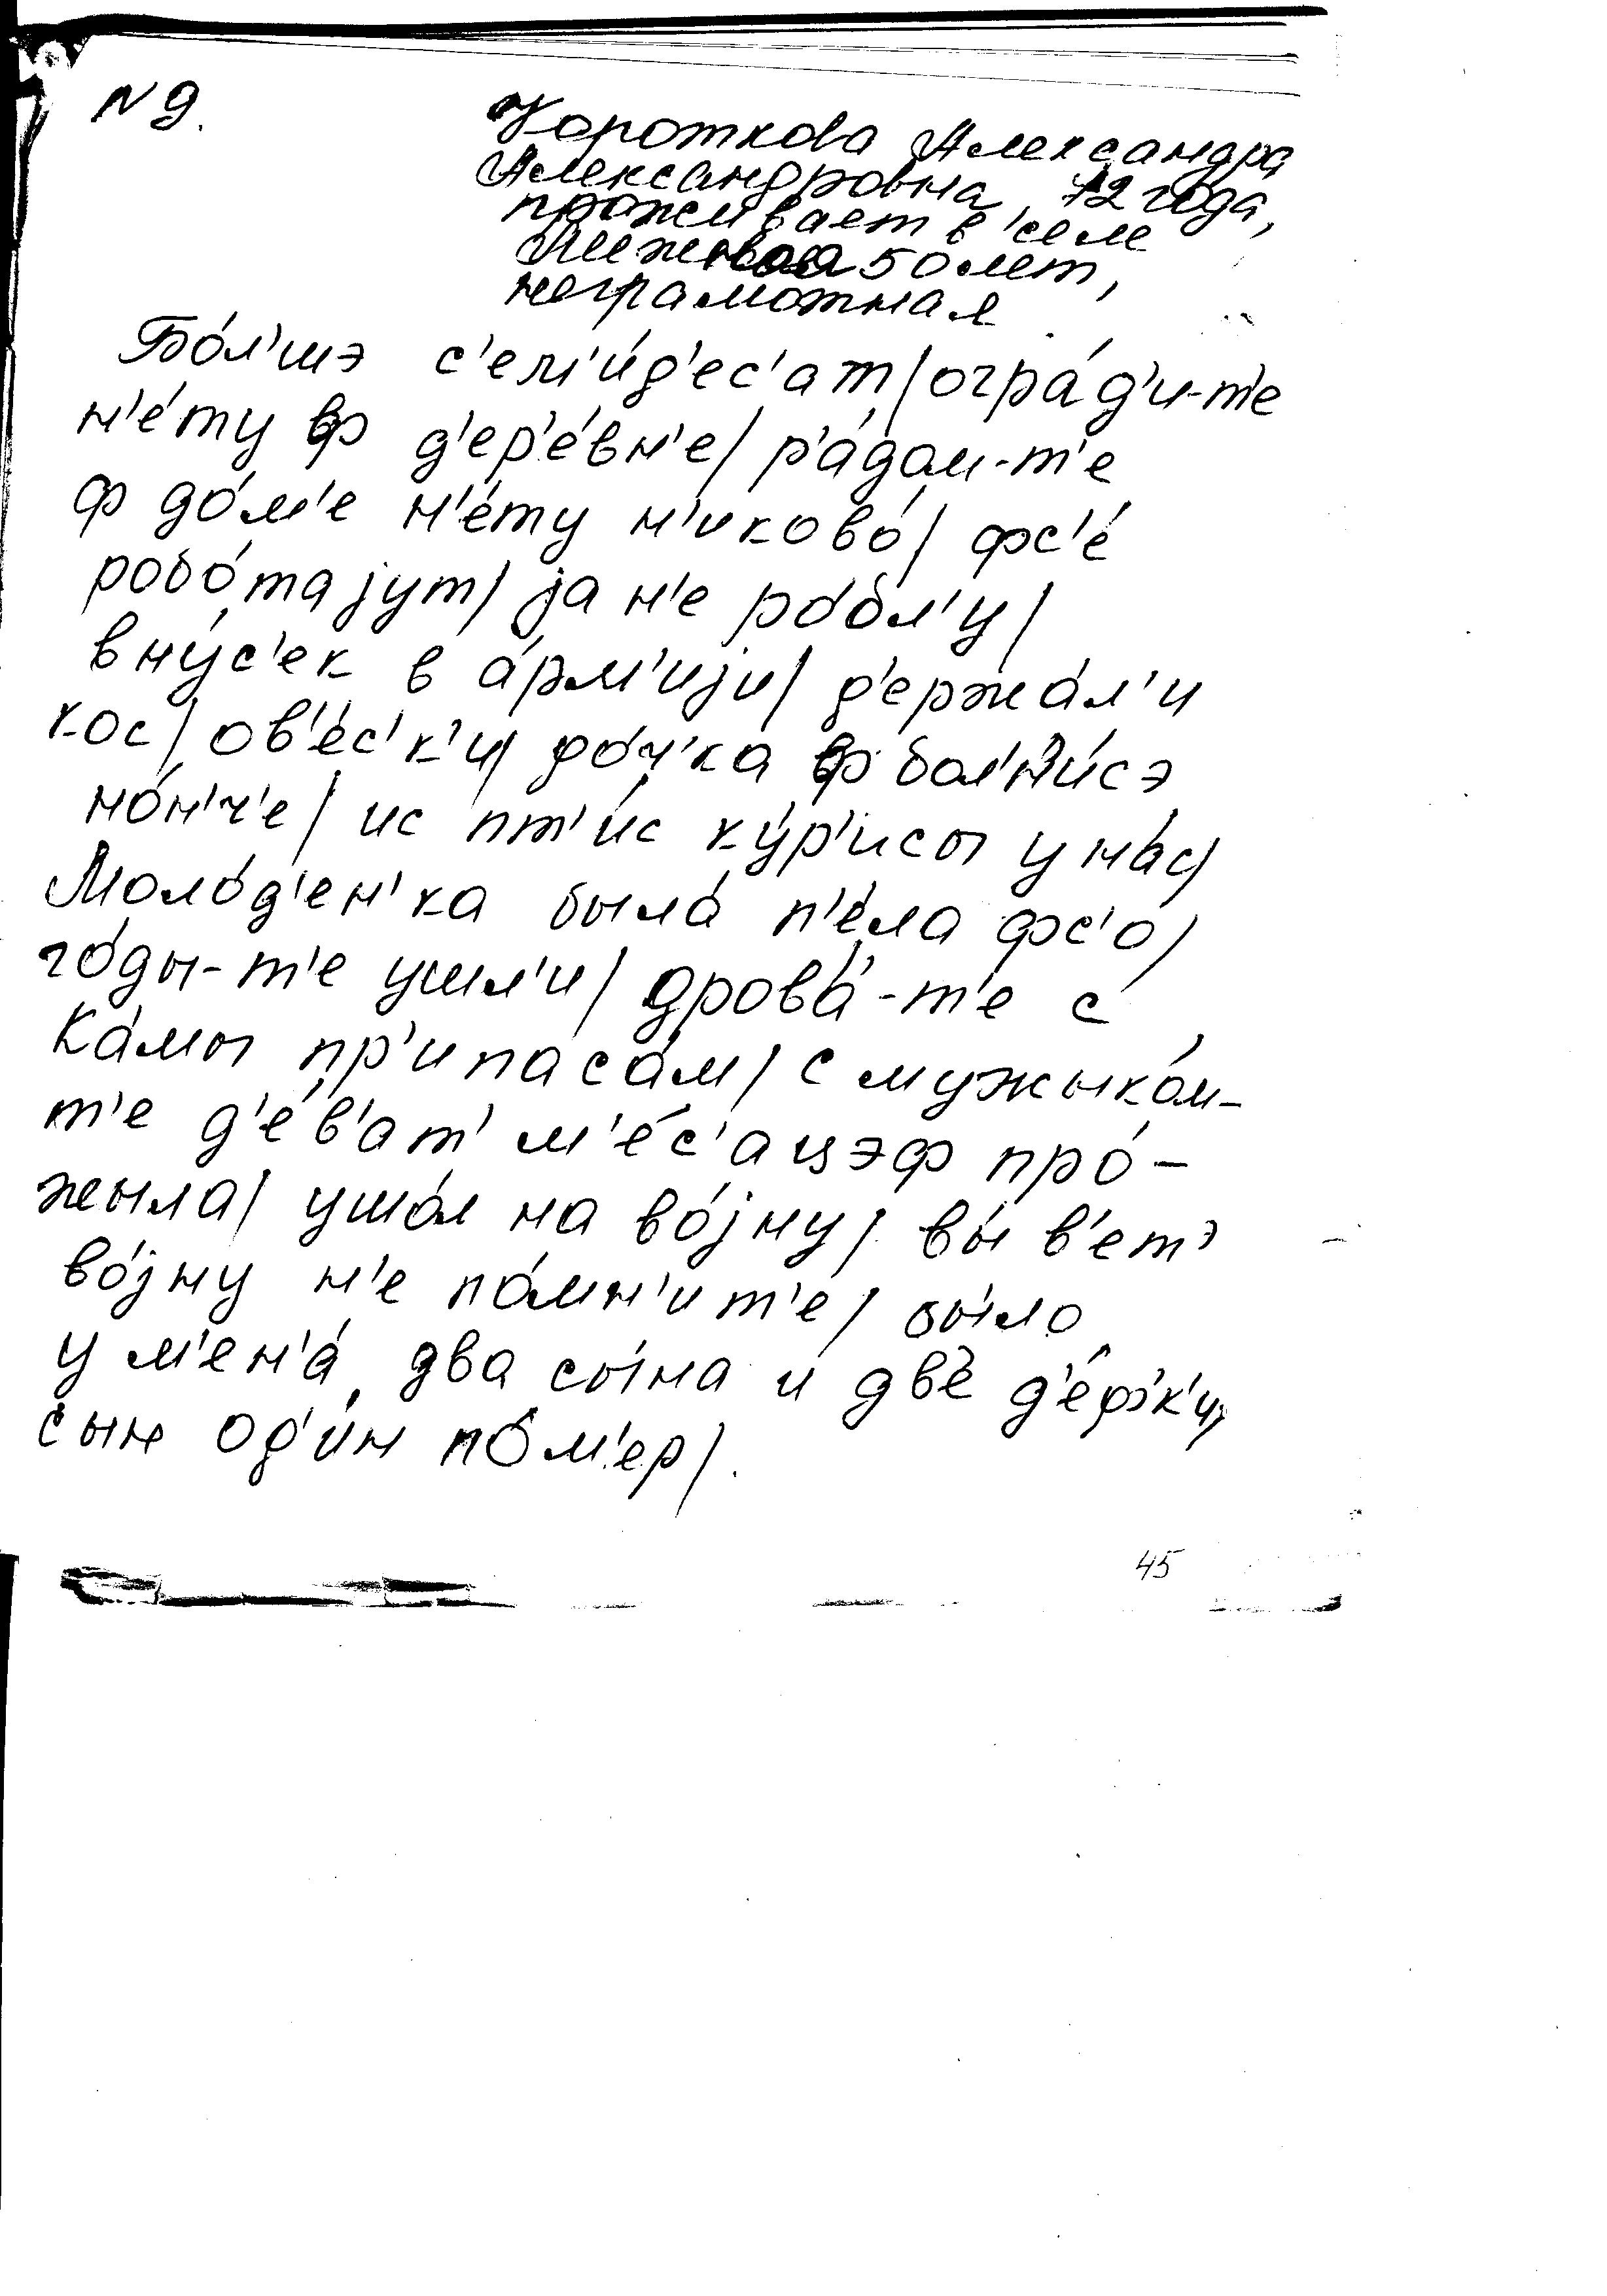 N 9.
Короткова Александра
Александровна, 72 года,
проживает в селе
50 лет,
неграмотная
Бо́л'шэ с'ем'и́д'ес'ат | огра́д'и-т'е
н'е́ту ф д'ер'е́вн'е | р'а́дом-т'е
ф до́м'е н'е́ту н'иково́ | фс'е́
робо́тајут | ја н'е ро́бл'у |
вну́с'ек в а́рм'ији | д'ержа́л'и
кос | ов'е́с'к'и | до́ч'ка ф бол'н'и́сэ
но́н'ч'е | ис пт'и́с ку́р'исы у на́с |
Моло́д'ен'ка была́ п'е́ла фс'о |
го́ды-т'е ушл'и́ | дрова́-т'е с
Ка́мы пр'ипаса́м | с мужыко́м-
т'е д'е́в'ат' м'е́с'ацэф про́-
жыла | ушо́л на во́јну | вы́ в'ет'
во́јну н'е по́мн'ит'е | бы́ло
у м'ен'а́ два сы́на и дв'е д'е́фк'и |
сын од'и́н по́м'ер |.
45